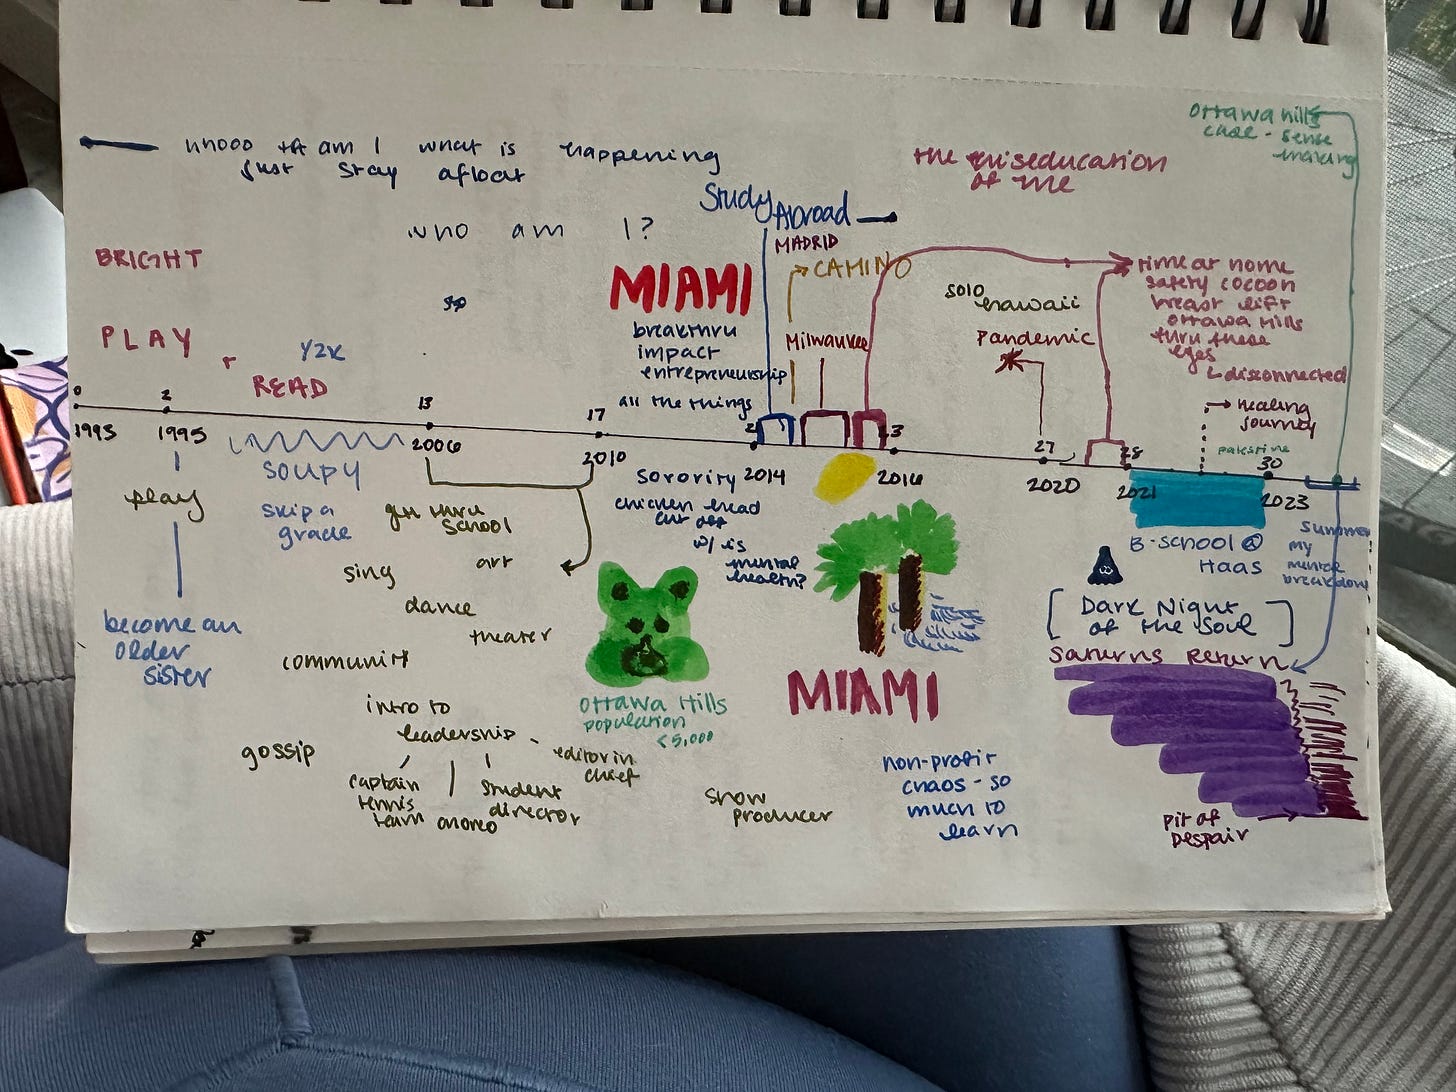 am I what is happening
just stay afloat
who am I?
BRIGHT
PLAY
+
Y2K
READ
Study
Abroad
MADRID
CAMINO
MIAMI
breakthru
impact
entrepreneurship
all the things
Milwaukee
the miseducation
of me
Ottawa hills
case - sense
making
solo
hawaii
Pandemic
time at home
safety cocoon
breast lift
Ottawa Hills
thru these
eyes
disconnected
healing
journey
palestine
0
2
13
17
27
28
30
1993
1995
2006
2010
2014
2016
2020
2021
2023
play
become an
older
sister
SOUPY
skip a
grade
get thru
school
art
sing
dance
theater
community
intro to
leadership
gossip
captain
tennis
team
student
director
editor in
chief
show
producer
Ottawa Hills
population
<5,000
sorority
chicken head
cut off
w/ is
mental
health?
MIAMI
non-profit
chaos - so
much to
learn
B-school @
Haas
[Dark Night
of the Soul]
Saturns Return
summer
my
mental
breakdown
pit of
Despair